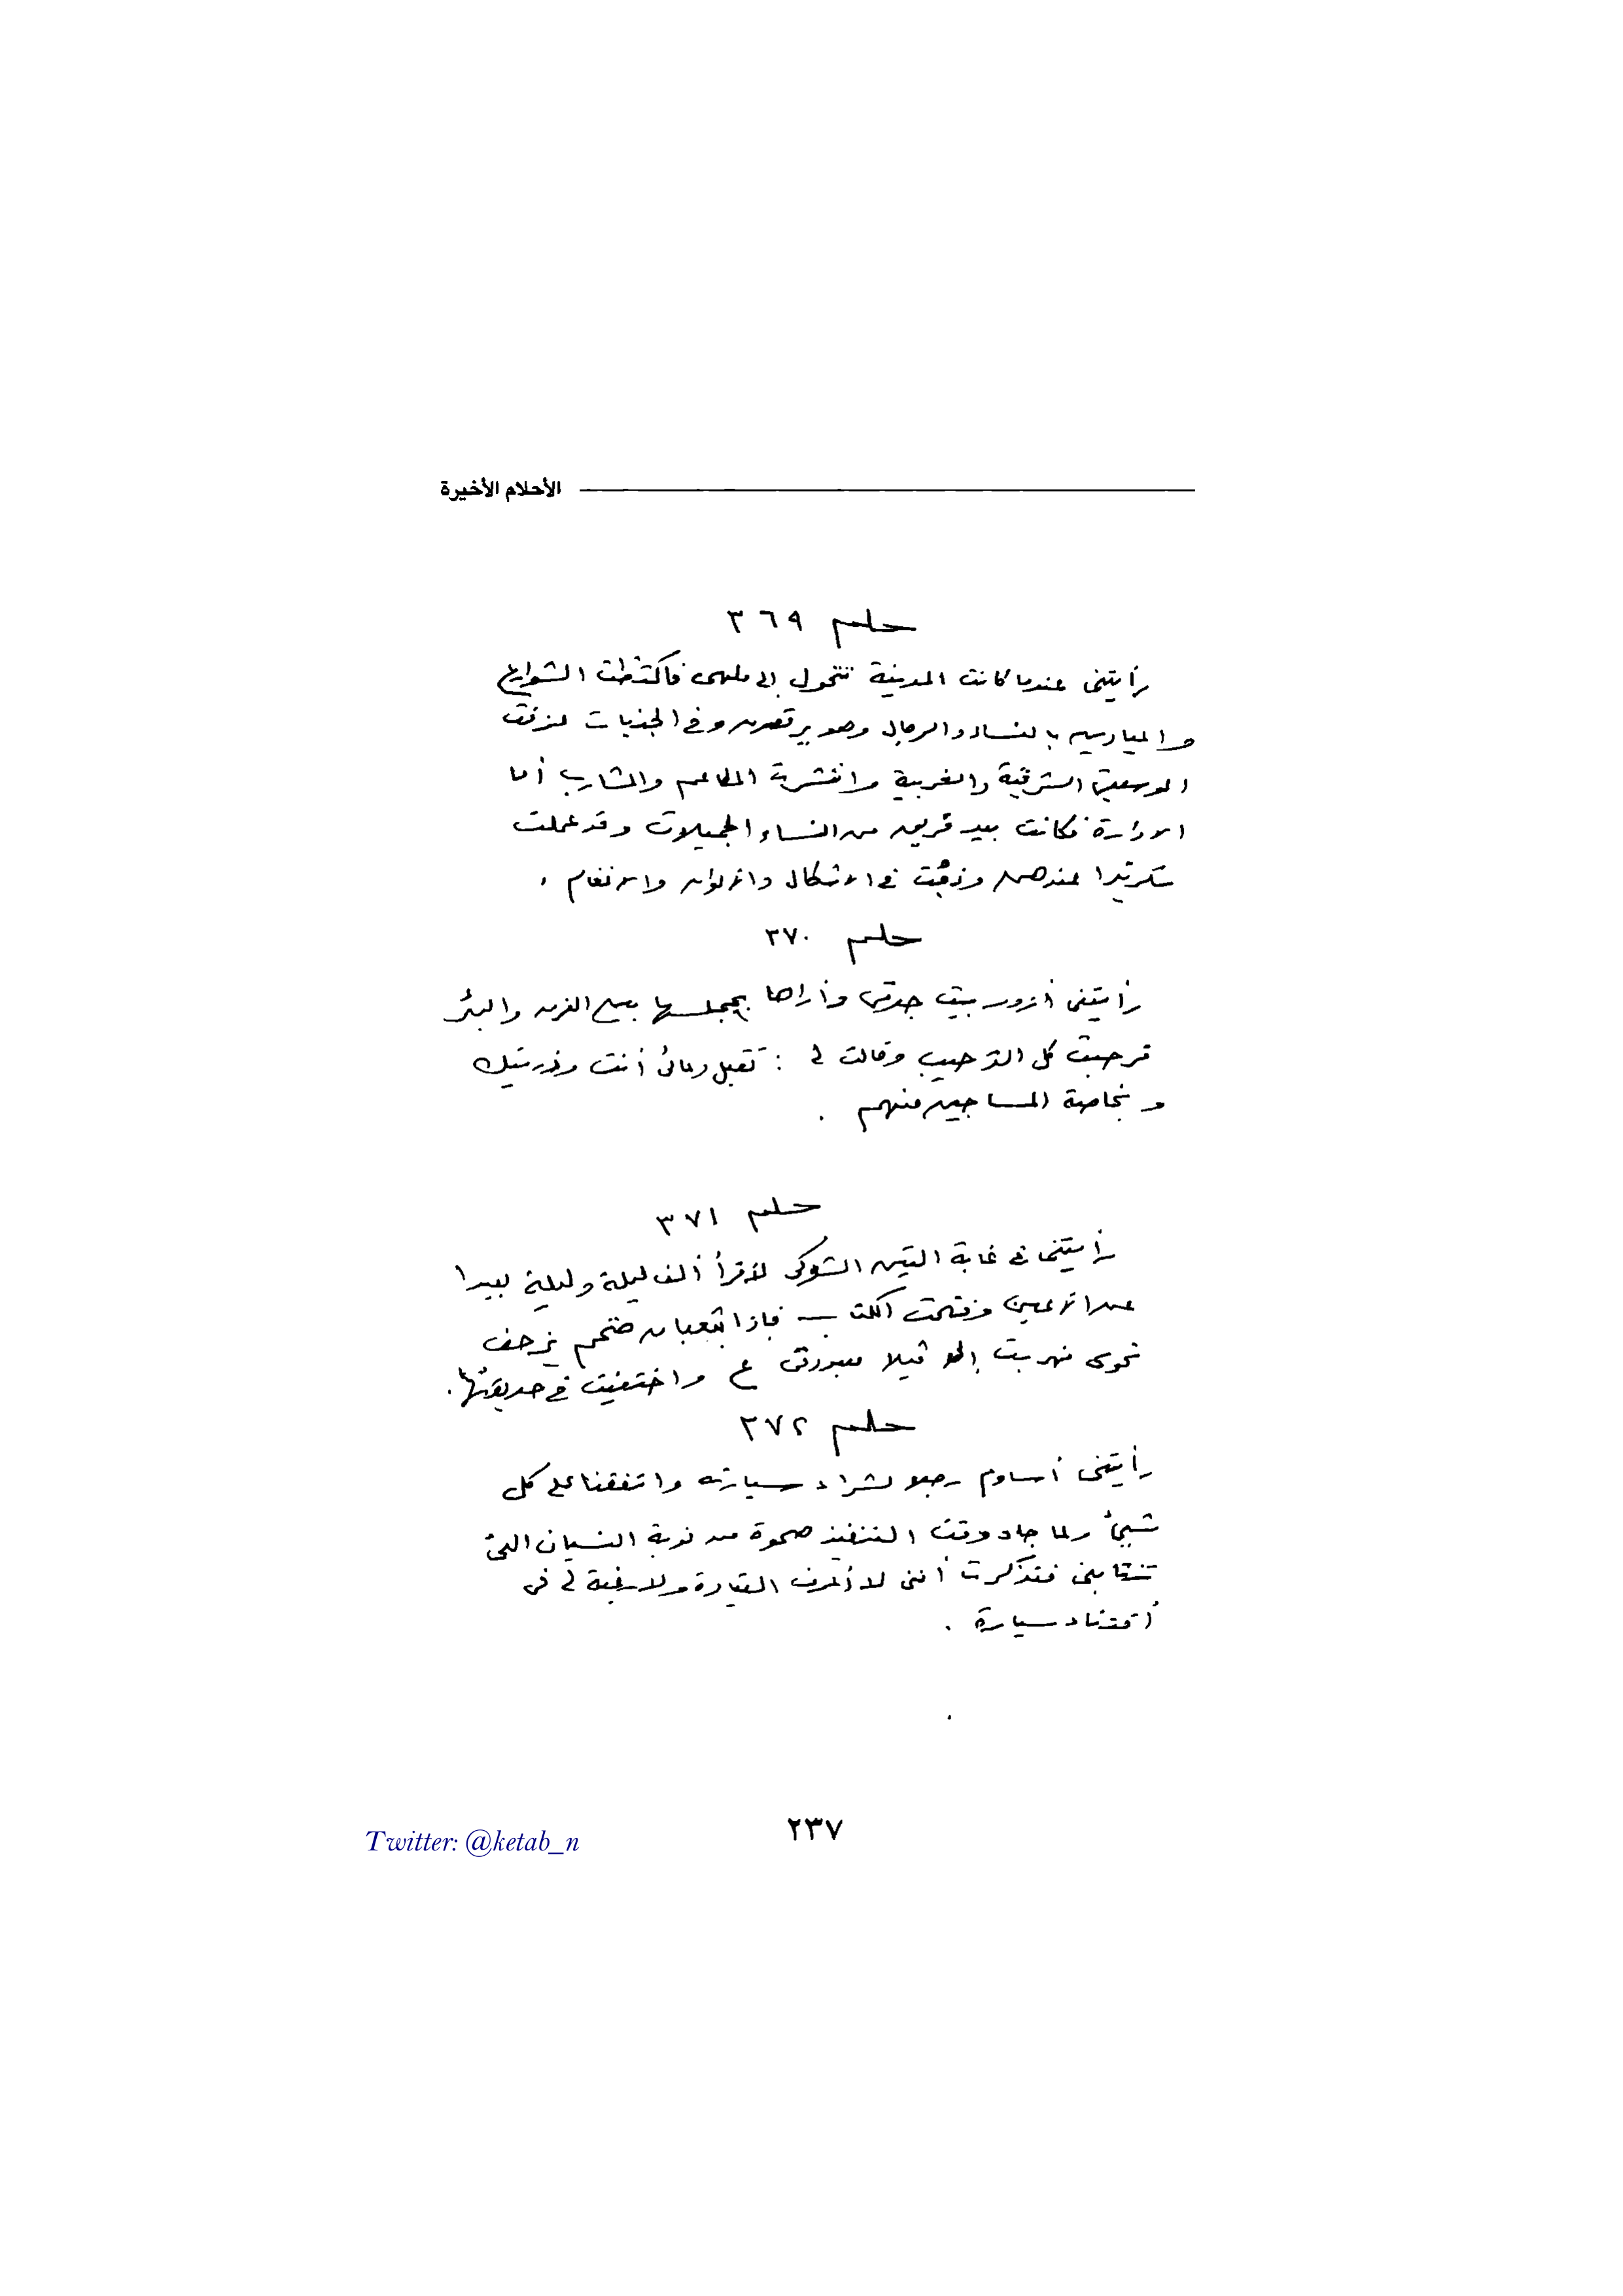 الأحلام الأخيرة
حلم ٣٦٩
رأيتنى عندما كانت المدينة تتحول إلى ملهى فاكتظت الشوارع
والميادين بالنساء والرجال وهم يرقصون وفى الجنبات عزفت
الموسيقى الشرقية والغربية وانتشرت المطاعم والمشارب أما
الإدارة فكانت بيد فريق من النساء الجميلات وقد عملت
سكرتيرا عندهن وذبت فى الأشكال والألوان والأنغام .
حلم ٣٧٠
رأيتنى أزور بيت جدتى وأراها بمجلسها بين الفرن والبئر
فرحبت كل الترحيب وقالت لى : تقبل دعائى أنت وذريتك
وبخاصة المساجين منهم .
حلم ٣٧١
رأيتنى فى غابة التين الشوكى لأقرأ ألف ليلة وليلة بعيدا
عن الأعين وفتحت الكتاب فإذا بثعبان ضخم يزحف
نحوى فهربت إلى فيلا سيدتى ع واختفيت فى حديقتها .
حلم ٣٧٢
رأيتنى أساوم رجلا لشراء سيارته واتفقنا على كل
شيئ ولما جاء وقت التنفيذ صحوة من نوبة النسيان التى
تنتابنى فتذكرت أننى لا أعرف القيادة ولا رغبة لى فى
أقتناء سيارة .
٢٣٧
Twitter: @ketab_n